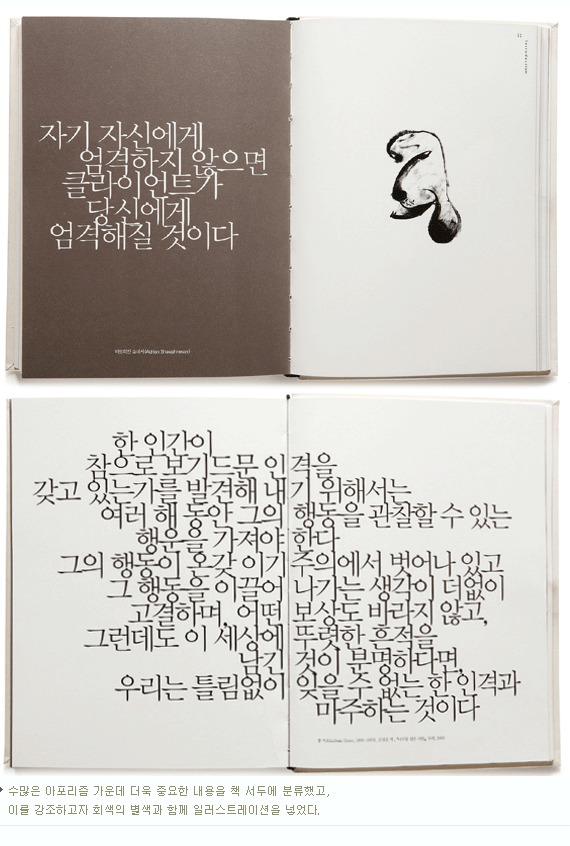 자기 자신에게
엄격하지 않으면
클라이언트가
당신에게
엄격해질 것이다
(Adrian Shaughnessy)
한 인간이
참으로 보기드문 인격을
갖고 있는가를 발견해 내기 위해서는
여러 해 동안 그의 행동을 관찰할 수 있는
행운을 가져야 한다
그의 행동이 온갖 이기주의에서 벗어나 있고
그 행동을 이끌어 나가는 생각이 더없이
고결하며, 어떤 보상도 바라지 않고,
그런데도 이 세상에 뚜렷한 흔적을
남긴 것이 분명하다면,
우리는 틀림없이 잊을 수 없는 한 인격과
마주하는 것이다
수많은 아포리즘 가운데 더욱 중요한 내용을 책 서두에 분류했고,
이를 강조하고자 회색의 별색과 함께 일러스트레이션을 넣었다.